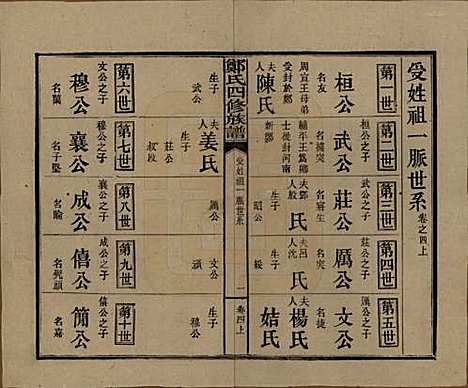 受姓祖一脈世系 卷之四上
第一世
桓公 名友
周宣王母弟
受封於鄭
夫人 陳氏
生子
武公
第二世
武公 名掘突
輔平王爲卿
士徙封河南
新鄭
夫人 姜氏
生子
莊公
叔段
第三世
莊公 名寤生
武公之子
夫人 鄧氏
生子
昭公
厲公
第四世
厲公 名突
莊公之子
生子
文公
第五世
文公 名捷
厲公之子
夫人 楊氏
姞氏
生子
穆公
鄭氏四修族譜
受姓祖一脈世系
一
卷四上
第六世
穆公 名蘭
文公之子
第七世
襄公 名子堅
穆公之子
第八世
成公 名睔
襄公之子
第九世
僖公 名髡頑
成公之子
第十世
簡公 名嘉
僖公之子